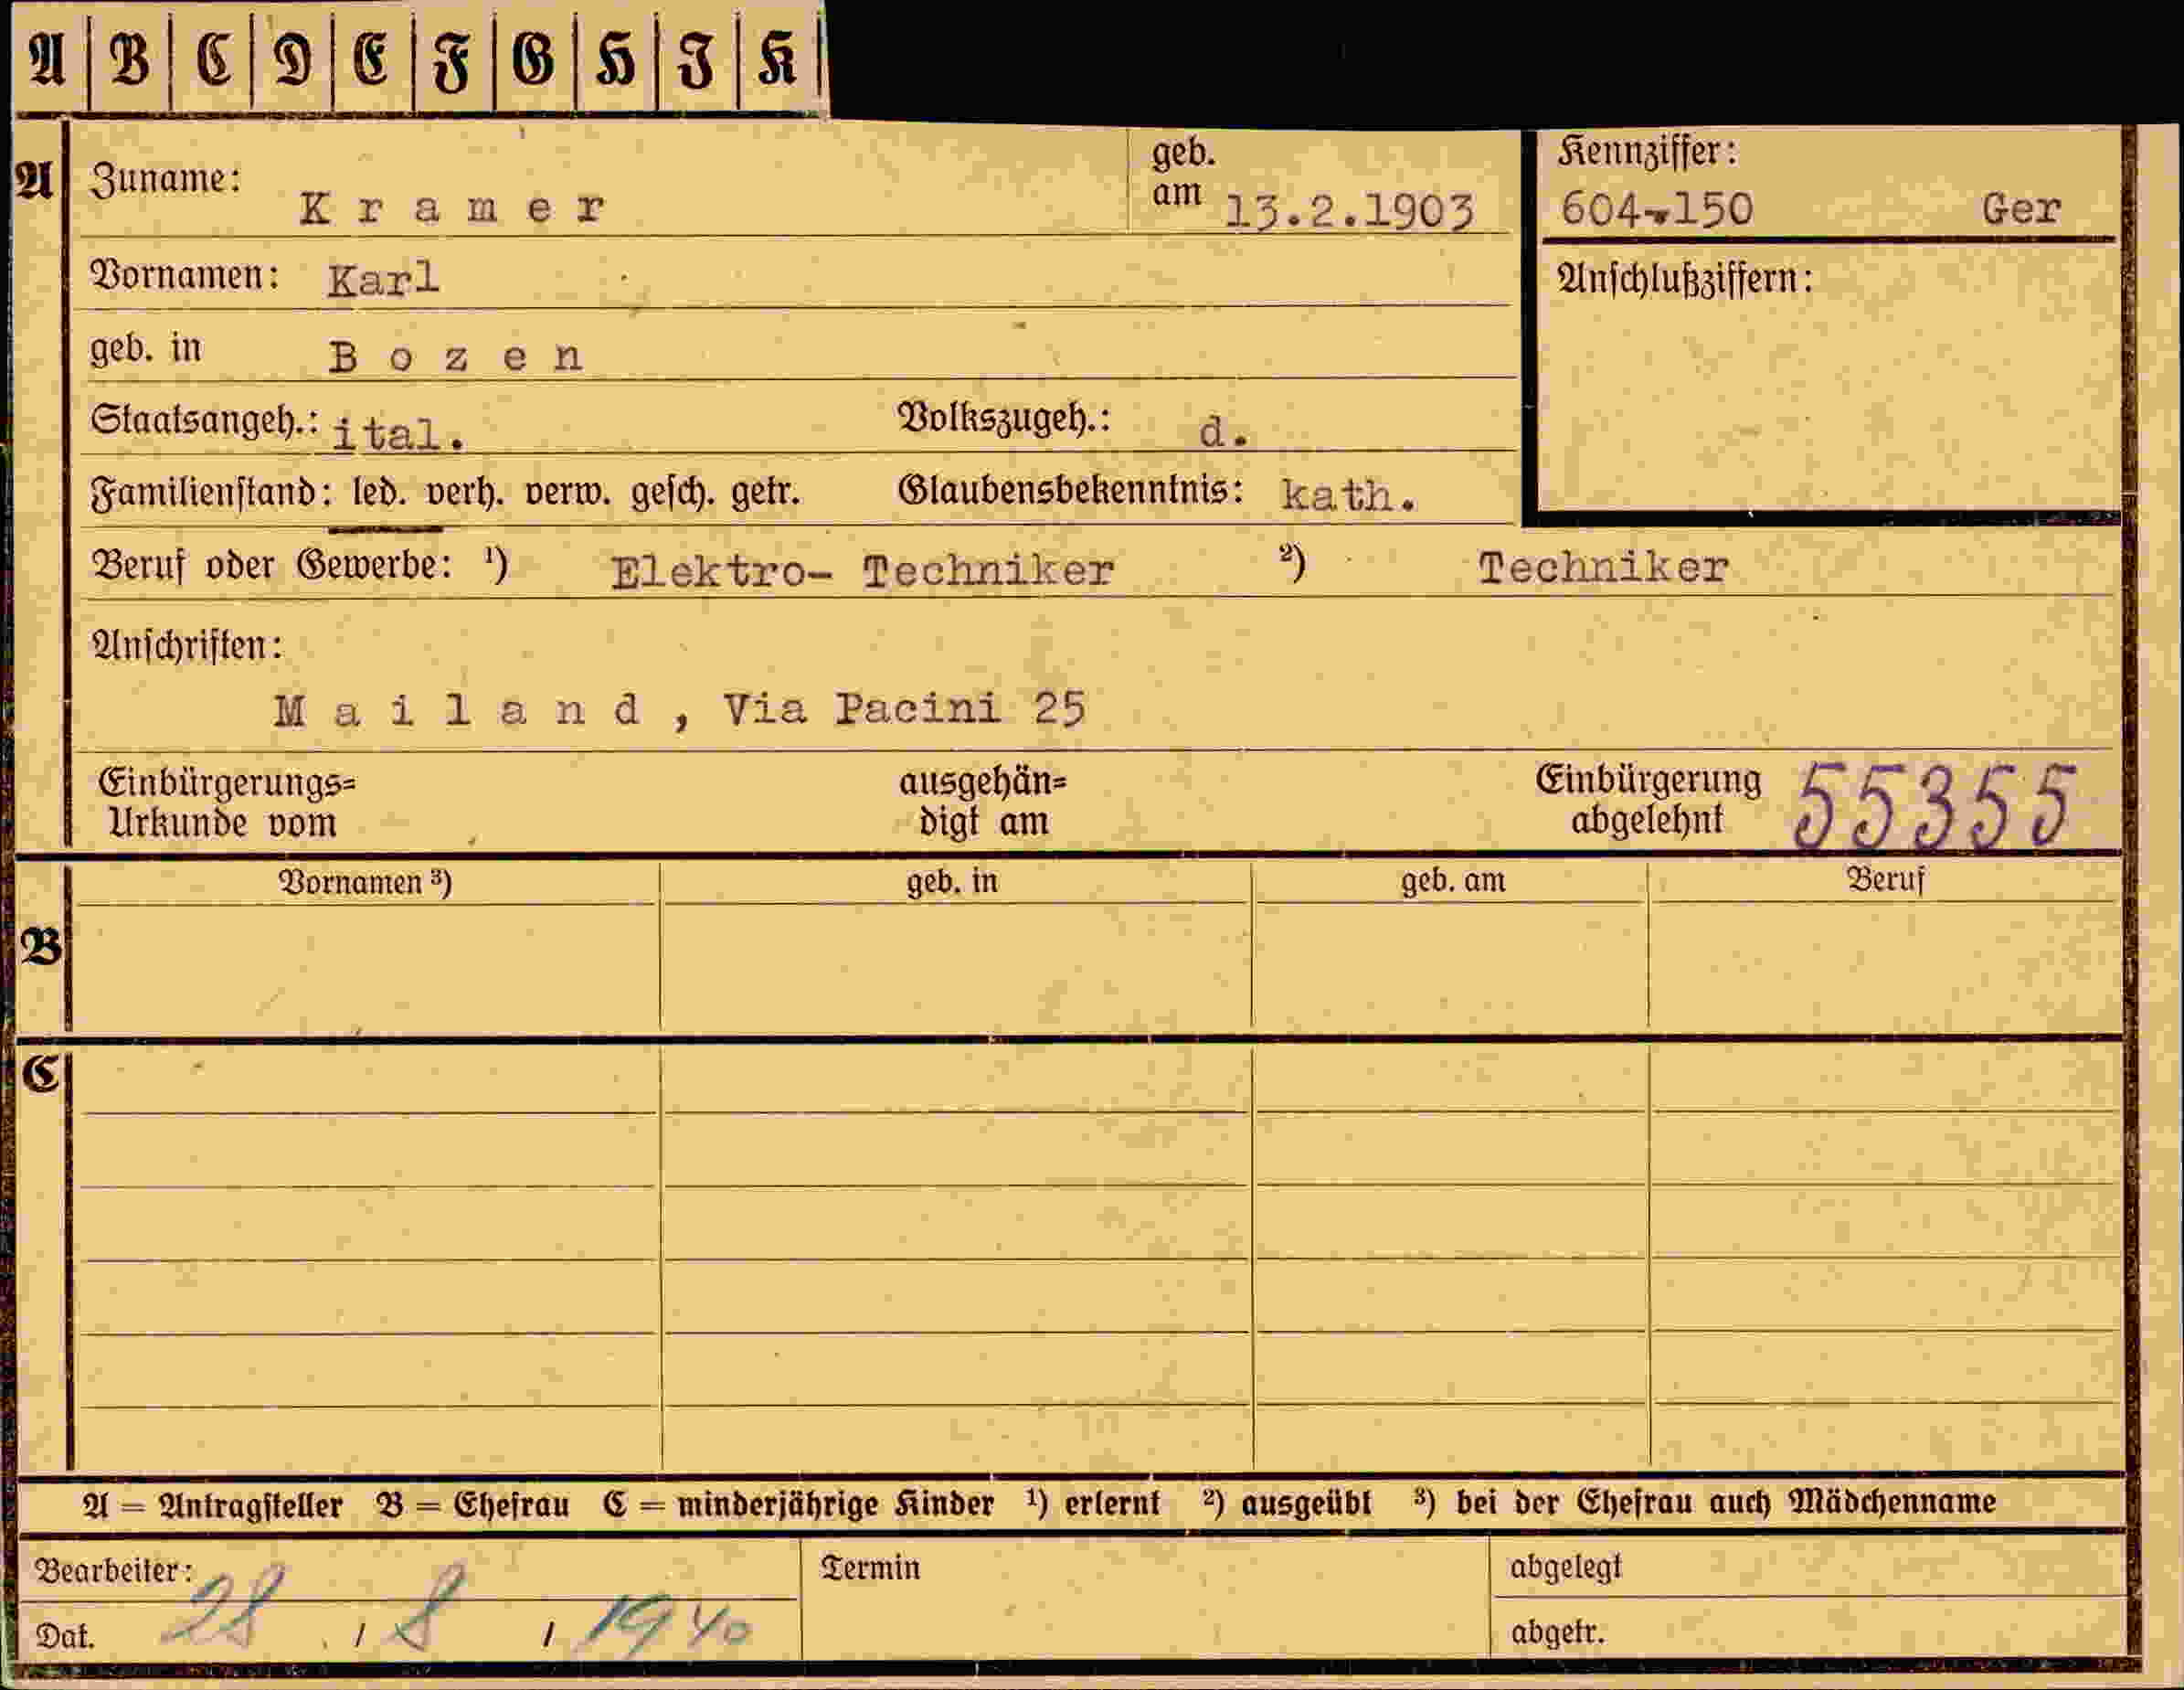 A B C D E F G H I K
A Zuname: Kramer geb. am 13.2.1903 Kennziffer:
604-150 Ger
Vornamen: Karl Anschlußziffern:
geb. in Bozen
Staatsangeh.: ital. Volkszugeh.: d.
Familienstand: led. verh. verw. gesch. getr. Glaubensbekenntnis: kath.
Beruf oder Gewerbe: ¹) Elektro- Techniker ²) Techniker
Anschriften:
Mailand, Via Pacini 25
Einbürgerungs= ausgehän= Einbürgerung 55355
Urkunde vom digt am abgelehnt
Vornamen ³) geb. in geb. am Beruf
B
C
A = Antragsteller B = Ehefrau C = minderjährige Kinder ¹) erlernt ²) ausgeübt ³) bei der Ehefrau auch Mädchenname
Bearbeiter: Termin abgelegt
Dat. 28 / 8 / 1940 abgetr.